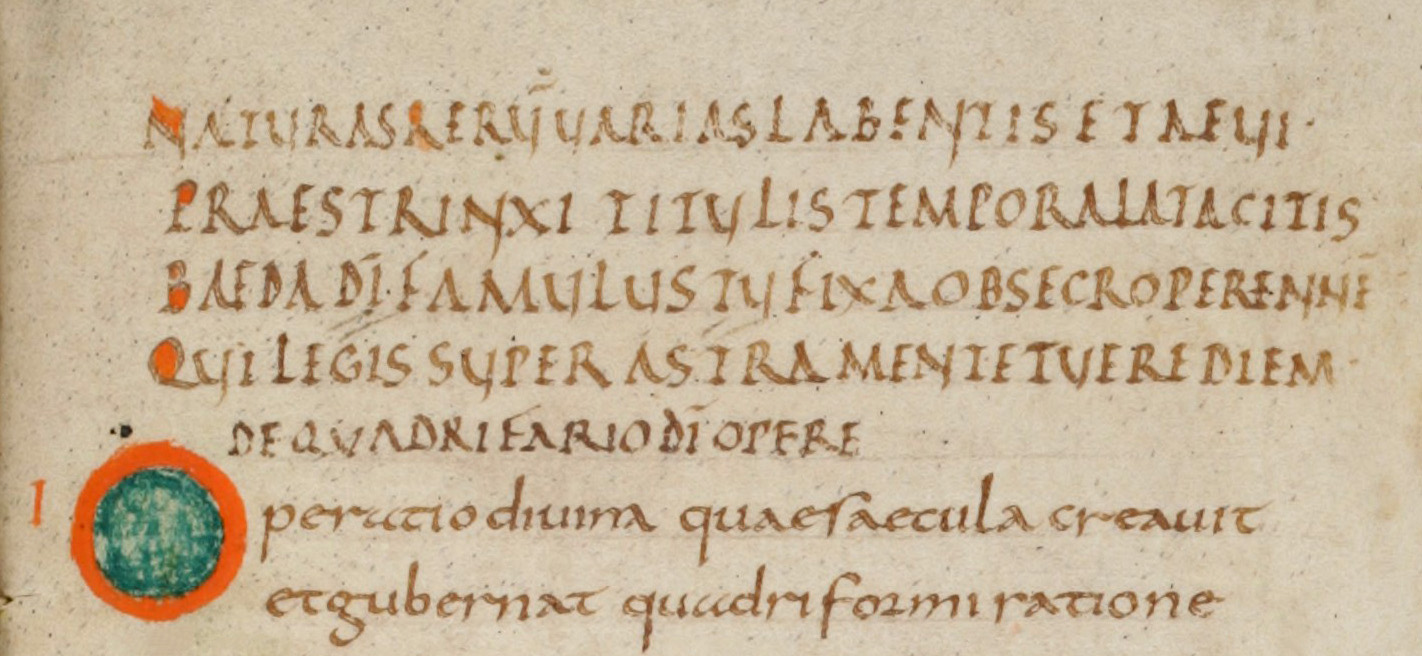 NATURAS RERŪ VARIAS LABENTIS ET AEVI·
PRAESTRINXI TITVLIS TEMPORA LATA CITIS
BAEDA DĪ FAMVLUS TV FIXA OBSECRO PERENNĒ
QVI LEGIS SVPER ASTRA MENTE TVERE DIEM·
DE QVADRIFARIO DĪ OPERE
I Operatio diuina quae saecula creauit
et gubernat quadriformi ratione